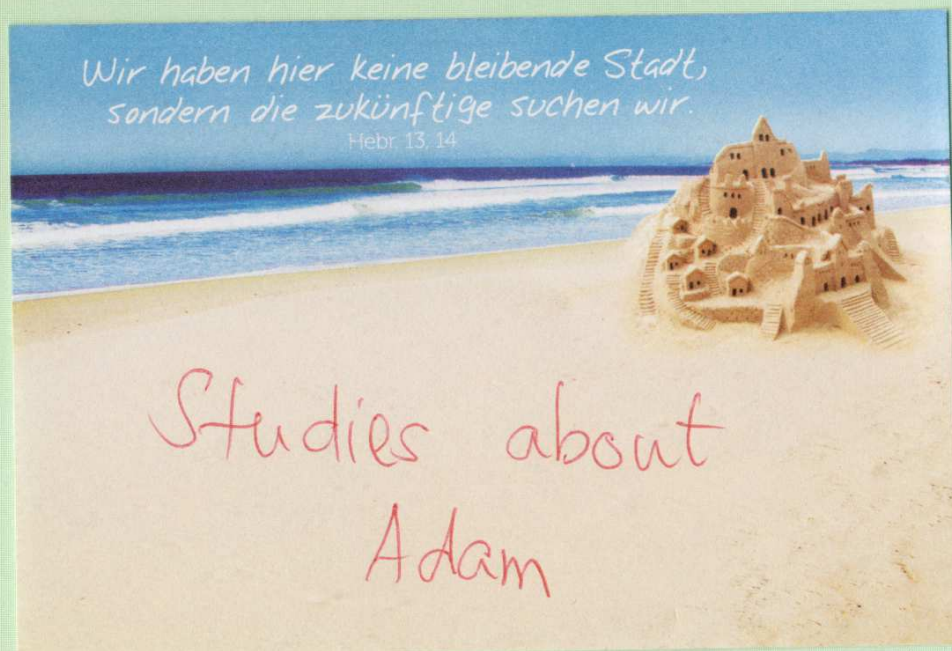 Wir haben hier keine bleibende Stadt,
sondern die zukünftige suchen wir.
Hebr. 13, 14
Studies about
Adam